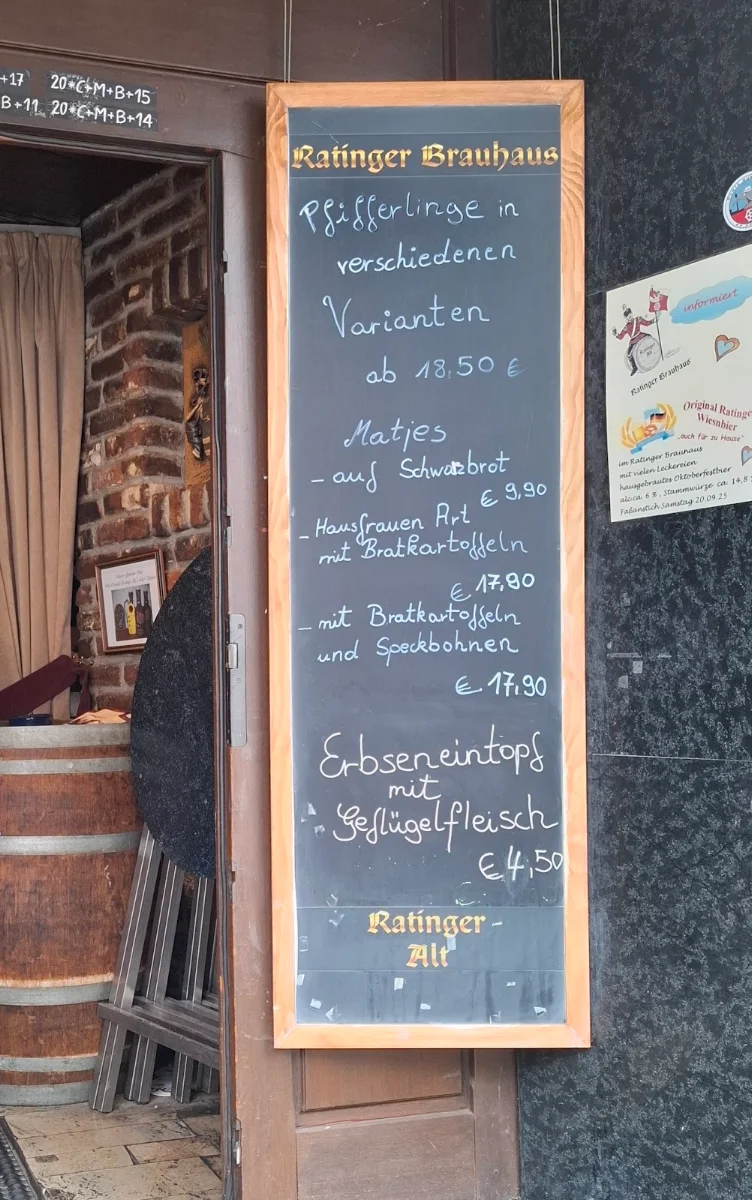 +17 20*C+M+B+15
B+11 20*C+M+B+14
Ratinger Brauhaus
Pfifferlinge in
verschiedenen
Varianten
ab 18.50 €
Matjes
- auf Schwarzbrot
€ 9,90
- Hausfrauen Art
mit Bratkartoffeln
€ 17,90
- mit Bratkartoffeln
und Speckbohnen
€ 17,90
Erbseneintopf
mit
Geflügelfleisch
€ 4,50
Ratinger
Alt
informiert
Ratinger Brauhaus
Original Ratinge
Wiesnbier
"auch für zu Hause"
im Ratinger Brauhaus
mit vielen Leckereien
hausgebrautes Oktoberfestbier
alc.ca. 6 %, Stammwürze ca. 14,8
Faßanstich Samstag 20.09.25